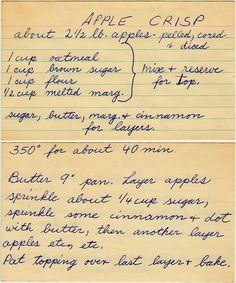 APPLE CRISP
about 2 1/2 lb. apples - pelled, cored
& diced
1 cup oatmeal
1 cup brown sugar
1 cup flour
1/2 cup melted marg.
mix & reserve
for top.
sugar, butter, marg. & cinnamon
for layers.
350° for about 40 min.
Butter 9" pan. Layer apples
sprinkle about 1/4 cup sugar,
sprinkle some cinnamon & dot
with butter, then another layer
apples etc, etc.
Pat topping over last layer & bake.